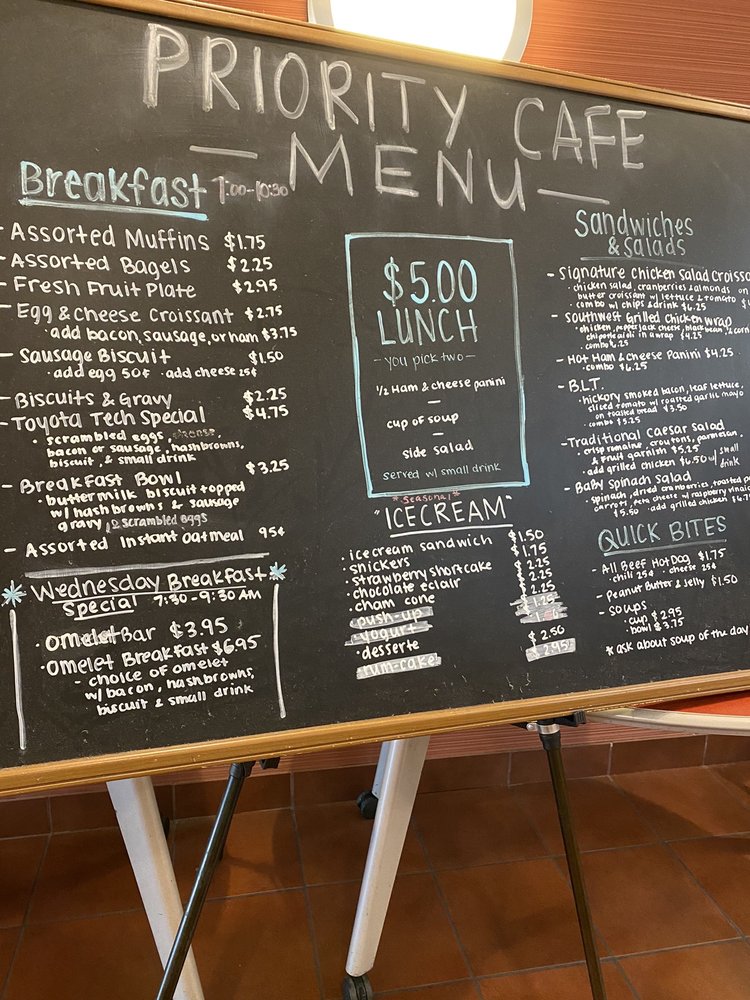 PRIORITY CAFE
— MENU —
Breakfast 7:00-10:30
- Assorted Muffins $1.75
- Assorted Bagels $2.25
- Fresh Fruit Plate $2.95
- Egg & Cheese Croissant $2.75
• add bacon, sausage, or ham $3.75
- Sausage Biscuit $1.50
• add egg 50¢ • add cheese 25¢
- Biscuits & Gravy $2.25
- Toyota Tech Special $4.75
• scrambled eggs, cheese,
bacon or sausage, hashbrowns,
biscuit, & small drink
- Breakfast Bowl $3.25
• buttermilk biscuit topped
w/ hashbrowns & sausage
gravy, 2 scrambled eggs
- Assorted Instant oatmeal 95¢
* Wednesday Breakfast *
Special 7:30-9:30 AM
• omelet Bar $3.95
• omelet Breakfast $6.95
- choice of omelet
w/ bacon, hashbrowns,
biscuit & small drink
$5.00
LUNCH
- you pick two -
1/2 Ham & cheese panini
—
cup of soup
—
side salad
served w/ small drink
*seasonal*
"ICECREAM"
• icecream sandwich $1.50
• snickers $1.75
• strawberry shortcake $2.25
• chocolate eclair $2.25
• cham cone $2.25
• push-up $1.25
• yogurt
• desserte $2.50
rum-cake $2.95
Sandwiches
& Salads
- Signature chicken Salad Croissa
• chicken salad, cranberries & almonds on
butter croissant w/ lettuce & tomato
combo w/ chips & drink $6.25
- southwest Grilled chicken wrap
• chicken, pepper jack cheese, black bean
chipotle aioli in a wrap $4.25
• combo
- Hot Ham & Cheese Panini $4.25
• combo $6.25
- B.L.T.
• hickory smoked bacon, leaf lettuce,
sliced tomato w/ roasted garlic mayo
on toasted bread $3.50
• combo $5.25
- Traditional Caesar Salad
• crisp romaine, croutons, parmesan,
& fruit garnish $5.25
• add grilled chicken $6.50 w/ small
drink
- Baby spinach salad
• spinach, dried cranberries, toasted
carrots, feta cheese w/ raspberry
$5.50 • add grilled chicken
QUICK BITES
- All Beef Hot Dog $1.75
• chili 25¢ • cheese 25¢
- Peanut Butter & Jelly $1.50
- soups
• cup $2.95
• bowl $3.75
* ask about soup of the day